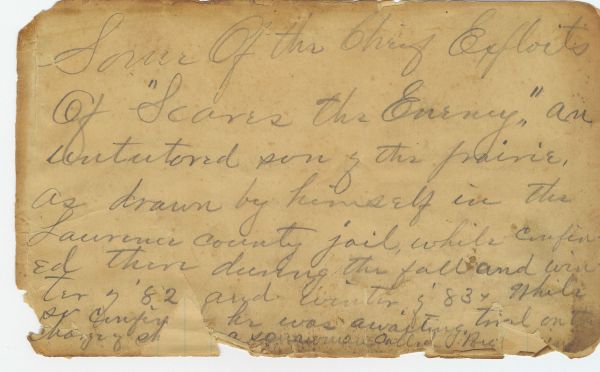 Some Of the Chief Exploits
Of "Scares the Enemy," an
untutored son of the prairie,
as drawn by himself in the
Lawrence county jail, while confin-
ed there during the fall and win-
ter of '82 and winter of '83. While
so confin he was awaiting trial on the
charge of